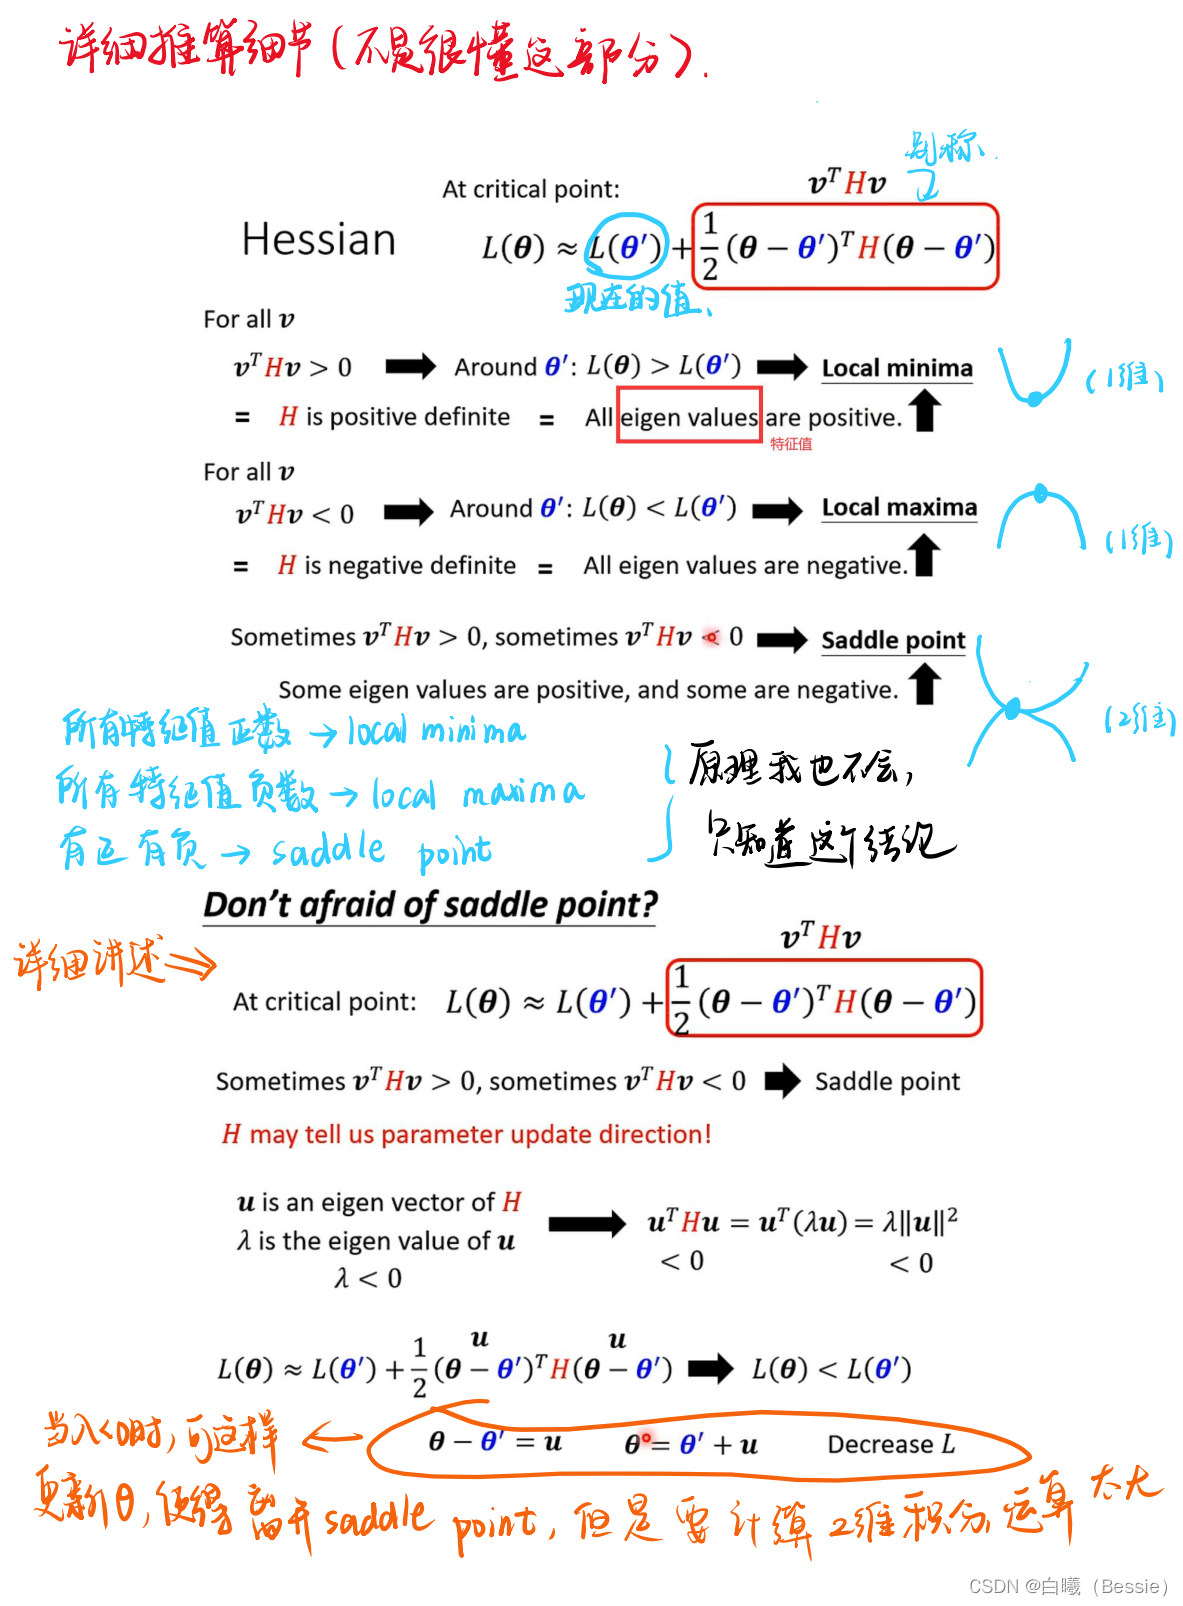 详细推算细节(不是很懂这部分).
别称.
At critical point:
vᵀHv
Hessian
L(θ) ≈ L(θ′) + 1/2 (θ − θ′)ᵀH(θ − θ′)
现在的值、
For all v
vᵀHv > 0 ➡ Around θ′: L(θ) > L(θ′) ➡ Local minima
(1维)
= H is positive definite = All eigen values are positive.
特征值
For all v
vᵀHv < 0 ➡ Around θ′: L(θ) < L(θ′) ➡ Local maxima
(1维)
= H is negative definite = All eigen values are negative.
Sometimes vᵀHv > 0, sometimes vᵀHv < 0 ➡ Saddle point
Some eigen values are positive, and some are negative.
(2维)
所有特征值正数 → local minima
所有特征值负数 → local maxima
有正有负 → saddle point
原理我也不会,
只知道这个结论
Don't afraid of saddle point?
详细讲述 ⇒
vᵀHv
At critical point: L(θ) ≈ L(θ′) + 1/2 (θ − θ′)ᵀH(θ − θ′)
Sometimes vᵀHv > 0, sometimes vᵀHv < 0 ➡ Saddle point
H may tell us parameter update direction!
u is an eigen vector of H
λ is the eigen value of u
λ < 0
➡ uᵀHu = uᵀ(λu) = λ‖u‖²
< 0 < 0
u u
L(θ) ≈ L(θ′) + 1/2 (θ − θ′)ᵀH(θ − θ′) ➡ L(θ) < L(θ′)
当λ<0时,可这样 ←
θ − θ′ = u θ = θ′ + u Decrease L
更新θ,使得离开saddle point,但是要计算2维积分,运算太大
CSDN @白曦（Bessie）